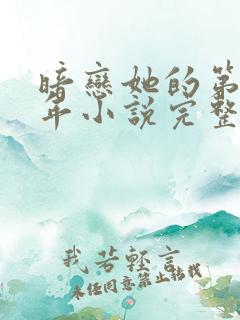 暗戀她的第
年小說完整
我若輕言
未经同意禁止转载